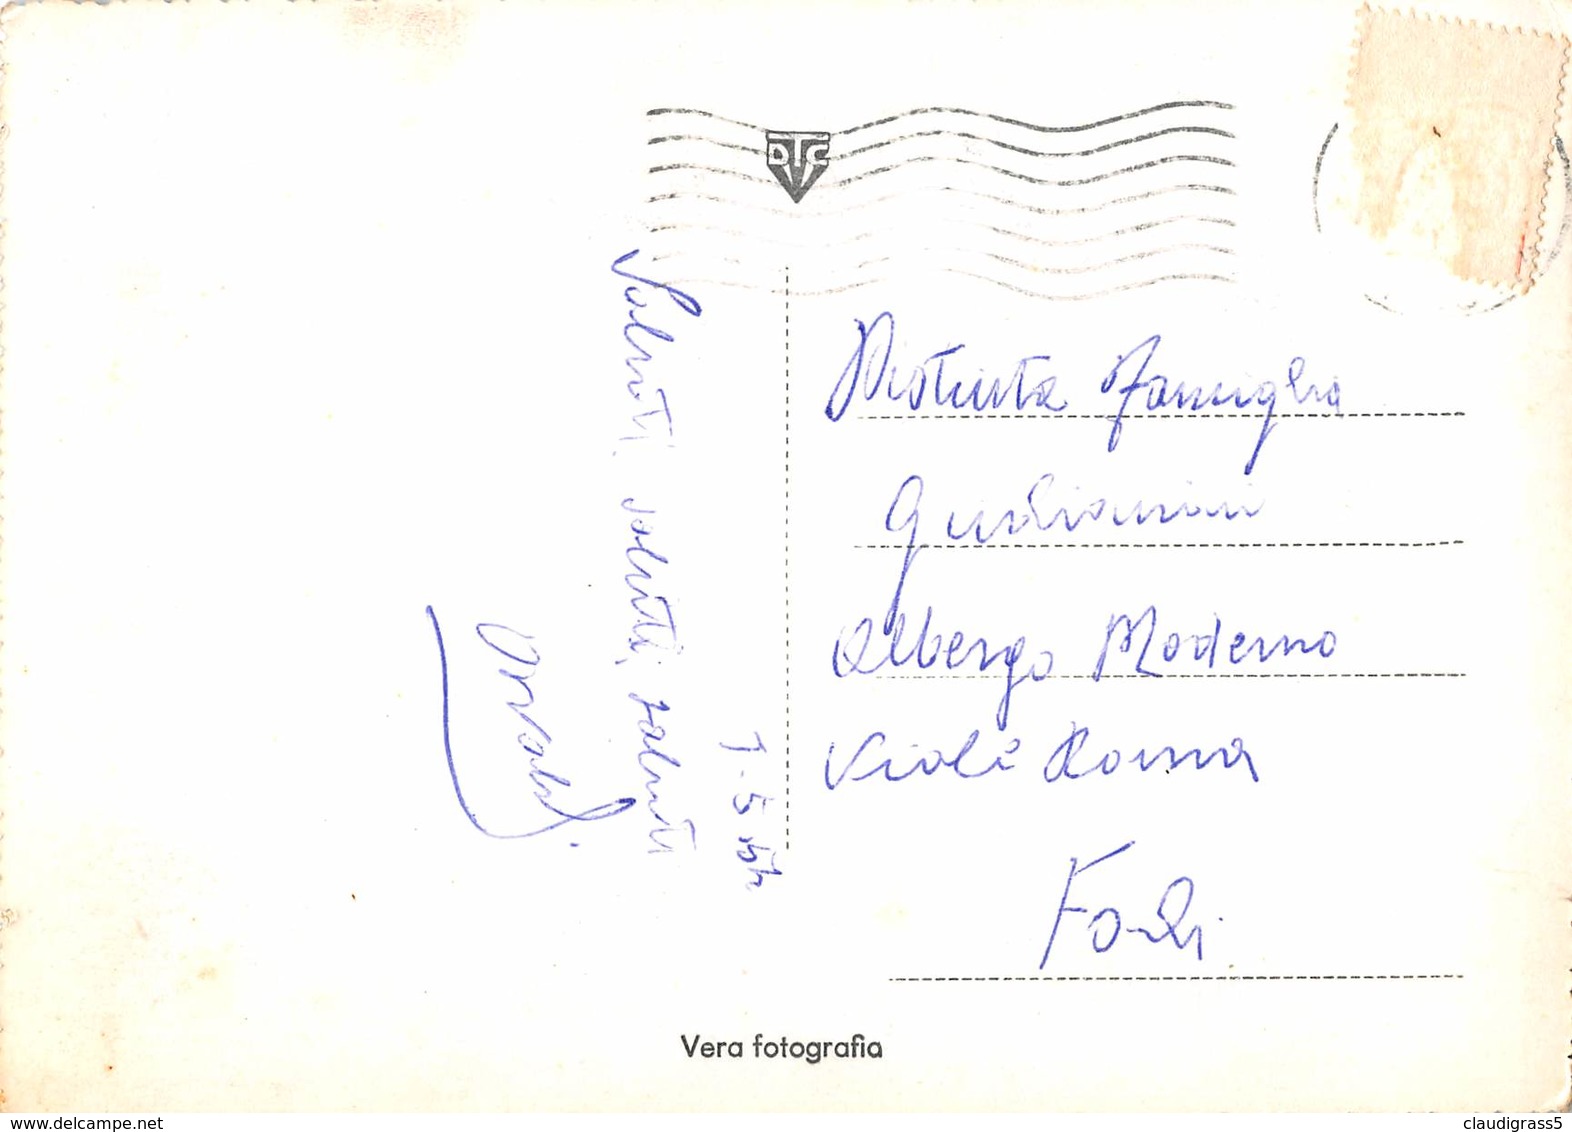 DTC
Saluti, saluti, saluti
7-5
Distinta Famiglia
Albergo Moderno
Viale Roma
Forlì
Vera fotografia
www.delcampe.net
claudigrass5